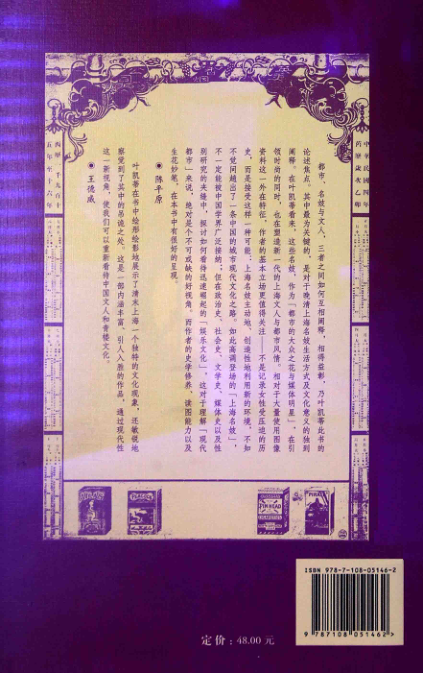 中華民國四年
都市、名妓与文人，三者之间如何互相阐释，相得益彰，乃叶凯蒂此书的
论述焦点。其中最为关键的，是对于晚清上海名妓生活方式及文化意义的独到
阐释。在叶凯蒂看来，这些名妓，作为「都市的大众之花与媒体明星」，在引
领时尚的同时，也在塑造新一代的上海文人与都市风情。相对于大量使用图像
资料这一外在特征，作者的基本立场更值得关注——不是记录女性受压迫的历
史，而是接受这样一种可能：上海名妓主动地、创造性地利用新的环境，不知
不觉间趟出了一条中国的城市现代文化之路。如此高调登场的「上海名妓」，
不一定能被中国学界广泛接纳；但在政治史、社会史、文学史、媒体史以及性
别研究的夹缝中，探讨如何看待迅速崛起的「娱乐文化」，这对于理解「现代
都市」来说，绝对是个不可或缺的好视角。而作者的史学修养、读图能力以及
生花妙笔，在本书中有很好的呈现。
●陈平原
叶凯蒂在书中绘形绘影地展示了清末上海一个独特的文化现象，还敏锐地
察觉到了其中的吊诡之处。这是一部内涵丰富、引人入胜的作品，通过现代性
这一新视角，使我们可以重新看待中国文人和青楼文化。
●王德威
西曆一千九百十
五年至十六年
PIN HEAD
ISBN 978-7-108-05146-2
9 787108 051462 >
定价：48.00 元